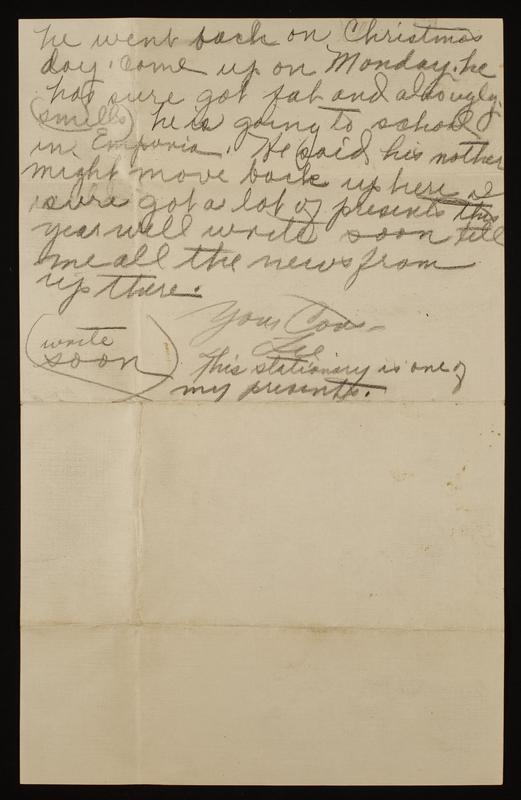 he went back on Christmas
day. come up on Monday. he
has sure got fat and also ugly.
(smells) he is going to school
in Emporia. He said his mother
might move back up here I
sure got a lot of presents this
year well write soon tell
me all the news from
up there.
Your Cou-
(write
soon)
This stationary is one of
my presents.